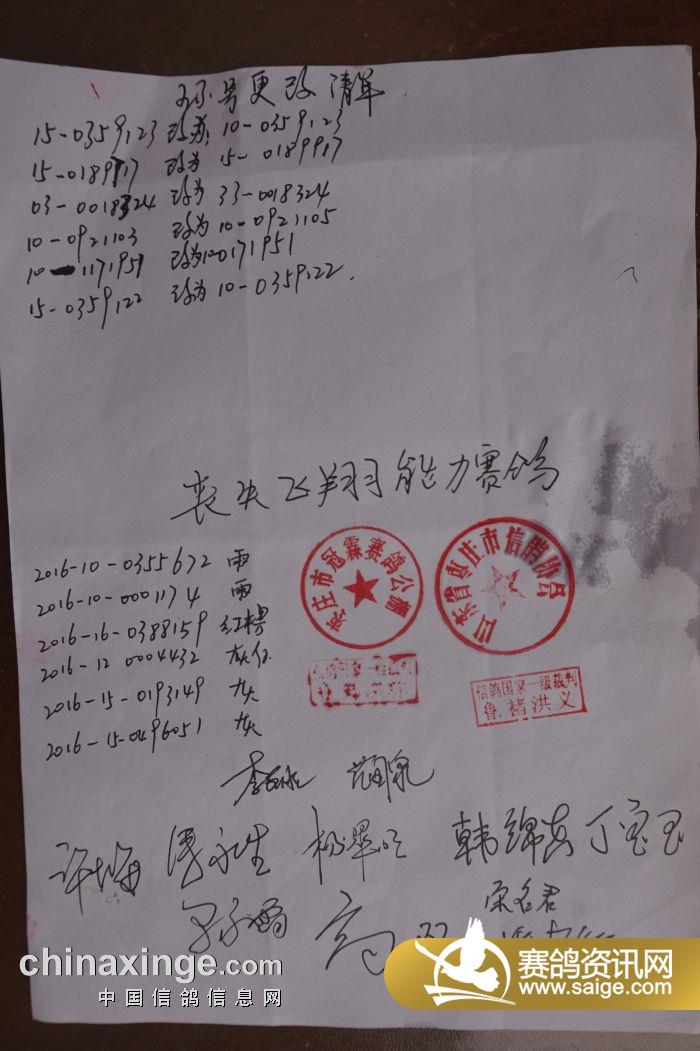 环号更改清单
15-0359123 改为 10-0359123
15-0189917 改为 15-0189917
03-0018324 改为 33-0018324
10-0921103 改为 10-0921105
10-1171951 改为 10-0171951
15-0359122 改为 10-0359122
丧失飞翔能力赛鸽
2016-10-0355672 雨
2016-10-0001174 雨
2016-16-0388159 红楞
2016-12 0004432 灰白
2016-15-0193149 灰
2016-15-0496051 灰
枣庄市冠霖赛鸽公棚
山东省枣庄市信鸽协会
信鸽国家一级裁判
鲁 褚洪义
许梅
韩锦 丁宝玉
宋名君
高
chinaxinge.com
中国信鸽信息网
赛鸽资讯网
www.saige.com